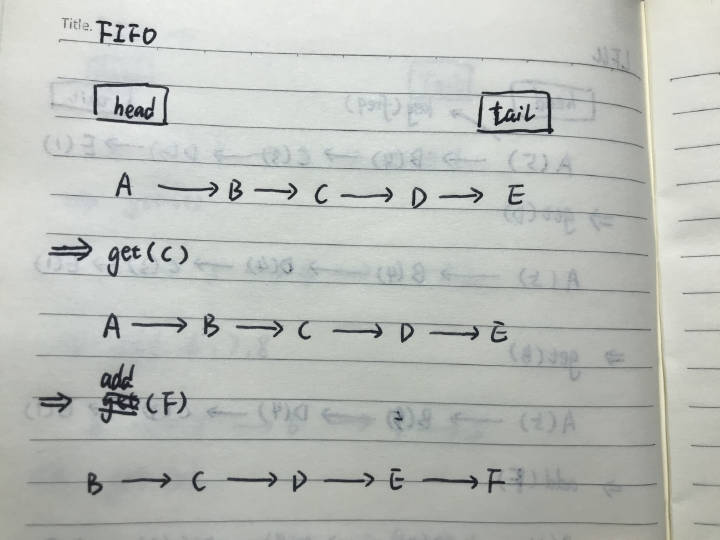 Title. FIFO
head tail
A → B → C → D → E
⇒ get(C)
A → B → C → D → E
add
⇒ get (F)
B → C → D → E → F